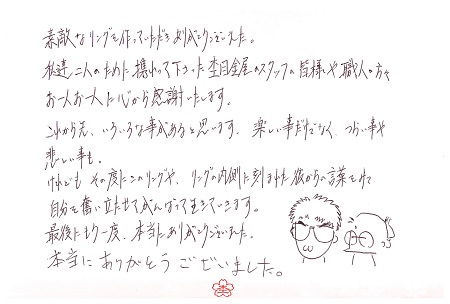 素敵なリングを作っていただきありがとうございました。
私達二人のために携わって下さった杢目金屋のスタッフの皆様や職人の方々
お一人お一人に心から感謝いたします。
これから先、いろいろな事があると思います。楽しい事だけでなく、つらい事や
悲しい事も。
けれども その度にこのリングや、リングの内側に刻まれた彼からの言葉をみて
自分を奮い立たせてがんばって生きていきます。
最後にもう一度、本当にありがとうございました。
本当にありがとうございました。